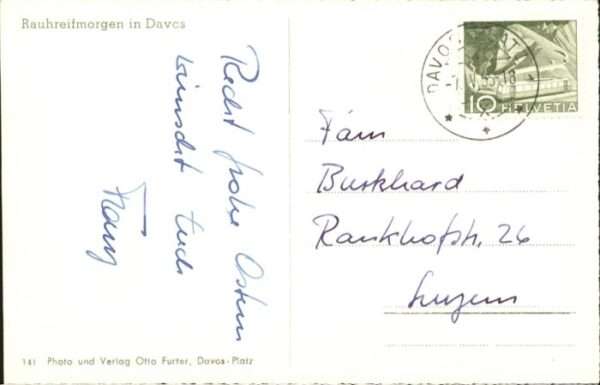 Rauhreifmorgen in Davos
Recht frohe Ostern
wünscht Euch
Franz
DAVOS PLATZ
10 HELVETIA
Fam
Burkhard
Rankhofstr. 26
Luzern
141 Photo und Verlag Otto Furter, Davos-Platz